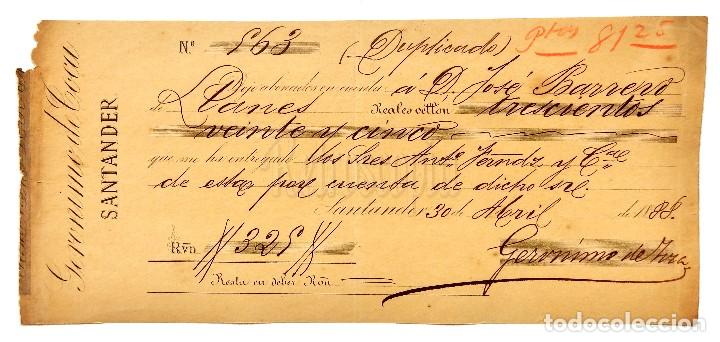 Geronimo de Coca
SANTANDER
Nº 563 (Duplicado) Ptas 81 25
Dejo abonados en cuenta á D. José Barrero
de Llanes Reales vellón trescientos
veinte y cinco
que me ha entregado los Sres Antº Ferndz y Cía
de esta por cuenta de dicho sr.
Santander 30 de Abril de 1888.
Rvn. 325
Geronimo de
Resta en deber Rvn.
todocoleccion
todocoleccion.net